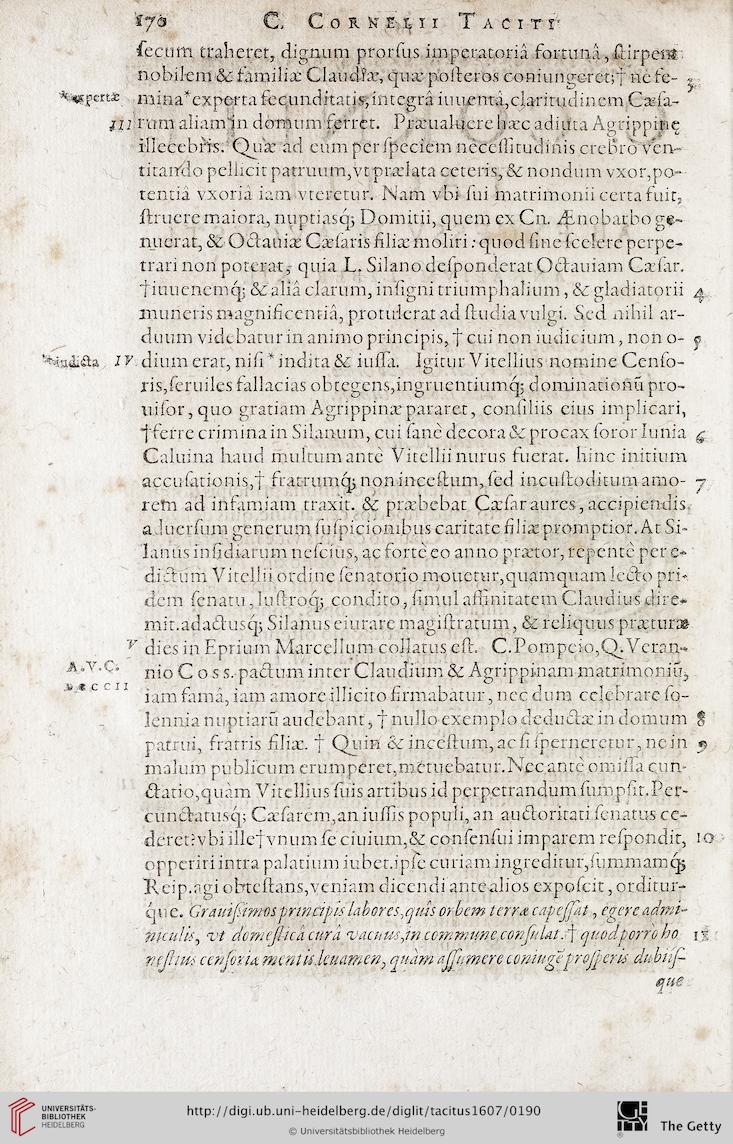 170 C. CORNELII TACITI
ſecum traheret, dignum prorſus imperatoriâ fortunâ, ſtirpem
nobilem & familiæ Claudiæ, quæ poſteros coniungeret;† ne fe-
*experta
mina*experta fecunditatis, integrâ iuuentâ, claritudinem Cæſa- 3
III rum aliam in domum ferret. Præualuere hæc adiuta Agrippinę
illecebris. Quæ ad eum per ſpeciem neceſſitudinis crebrò ven-
titando pellicit patruum, vt prælata ceteris, & nondum vxor, po-
tentiâ vxoriâ iam vteretur. Nam vbi ſui matrimonii certa fuit,
ſtruere maiora, nuptiasq́; Domitii, quem ex Cn. Ænobarbo ge-
nuerat, & Octauiæ Cæſaris filiæ moliri : quod ſine ſcelere perpe-
trari non poterat, quia L. Silano deſponderat Octauiam Cæſar.
†iuuenemq́; & aliâ clarum, inſigni triumphalium, & gladiatorii 4
muneris magnificentiâ, protulerat ad ſtudia vulgi. Sed nihil ar-
duum videbatur in animo principis, † cui non iudicium, non o- 5
*indicta IV dium erat, niſi * indita & iuſſa. Igitur Vitellius nomine Cenſo-
ris, ſeruiles fallacias obtegens, ingruentiumq́; dominationū pro-
uiſor, quo gratiam Agrippinæ pararet, conſiliis eius implicari,
†ferre crimina in Silanum, cui ſanè decora & procax ſoror Iunia 6
Caluina haud multum antè Vitellii nurus fuerat. hinc initium
accuſationis,† fratrumq́; non inceſtum, ſed incuſtoditum amo- 7
rem ad infamiam traxit. & præbebat Cæſar aures, accipiendis
aduerſum generum ſuſpicionibus caritate filiæ promptior. At Si-
lanus inſidiarum neſcius, ac fortè eo anno prætor, repentè per e-
dictum Vitellii ordine ſenatorio mouetur, quamquam lecto pri-
dem ſenatu, luſtroq́; condito, ſimul affinitatem Claudius dire-
mit. adactusq́; Silanus eiurare magiſtratum, & reliquus præturæ
V dies in Eprium Marcellum collatus eſt. C. Pompeio, Q. Veran-
A.V.C.
DCCCII
nio COSS. pactum inter Claudium & Agrippinam matrimoniū,
iam famâ, iam amore illicito firmabatur, nec dum celebrare ſo-
lennia nuptiarū audebant, † nullo exemplo deductæ in domum 8
patrui, fratris filiæ. † Quin & inceſtum, ac ſi ſperneretur, ne in 9
malum publicum erumperet, metuebatur. Nec antè omiſſa cun-
ctatio, quàm Vitellius ſuis artibus id perpetrandum ſumpſit. Per-
cunctatusq́; Cæſarem, an iuſſis populi, an auctoritati ſenatus ce-
deret? vbi ille†vnum ſe ciuium, & conſenſui imparem reſpondit, 10
opperiri intra palatium iubet. ipſe curiam ingreditur, ſummamq́;
Reip. agi obteſtans, veniam dicendi ante alios expoſcit, orditur-
q́ue. Grauiſsimos principis labores, quîs orbem terræ capeſſat, egere admi-
niculis, vt domeſticâ curâ vacuus, in commune conſulat.† quod porrò ho
neſtius cenſoriæ mentis leuamen, quàm aſſumere coniugē proſperis dubiiſ-
que
UNIVERSITÄTS-
BIBLIOTHEK
HEIDELBERG
http://digi.ub.uni-heidelberg.de/diglit/tacitus1607/0190
© Universitätsbibliothek Heidelberg
The Getty